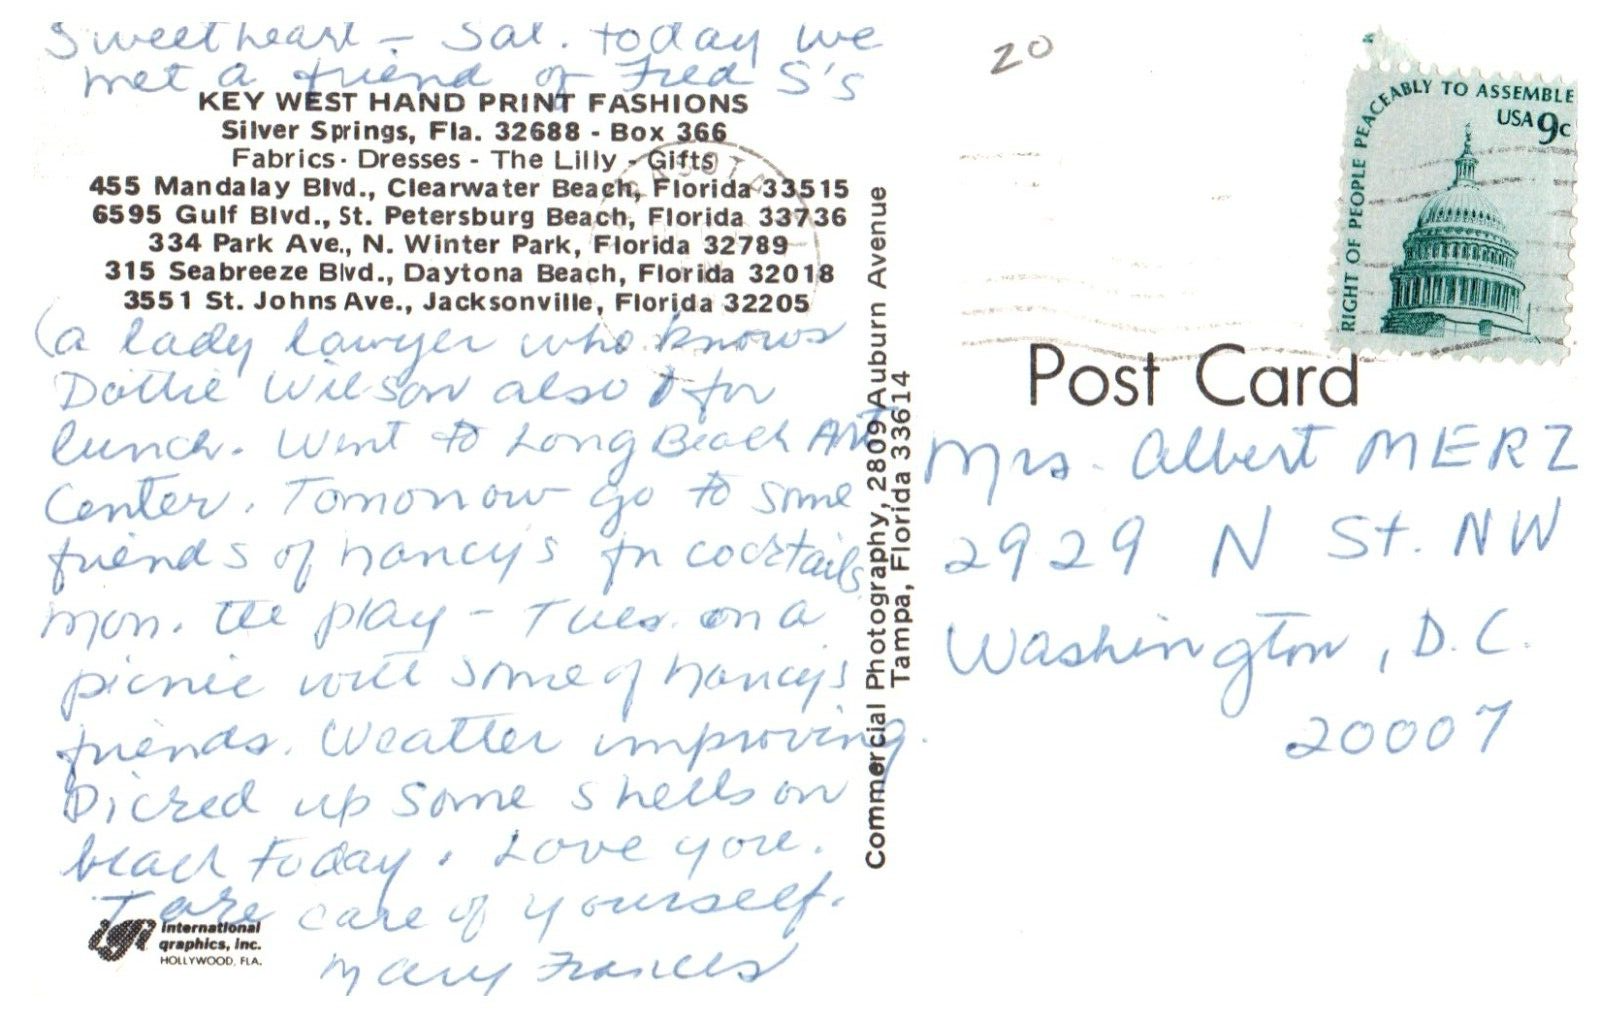 Sweetheart – Sat. today we
met a friend of Fred S's
KEY WEST HAND PRINT FASHIONS
Silver Springs, Fla. 32688 - Box 366
Fabrics - Dresses - The Lilly - Gifts
455 Mandalay Blvd., Clearwater Beach, Florida 33515
6595 Gulf Blvd., St. Petersburg Beach, Florida 33736
334 Park Ave., N. Winter Park, Florida 32789
315 Seabreeze Blvd., Daytona Beach, Florida 32018
3551 St. Johns Ave., Jacksonville, Florida 32205
(a lady lawyer who knows
Dottie Wilson also) for
lunch. Went to Long Beach Art
Center. Tomorrow go to some
friends of Nancy's for cocktails
Mon. the play – Tues. on a
picnic with some of Nancy's
friends. Weather improving.
Picked up some shells on
beach today. Love you.
Take care of yourself.
Mary Frances
international
graphics, inc.
HOLLYWOOD, FLA.
Commercial Photography, 2809 Auburn Avenue
Tampa, Florida 33614
20
RIGHT OF PEOPLE PEACEABLY TO ASSEMBLE
USA 9c
Post Card
Mrs. Albert MERZ
2929 N St. NW
Washington, D.C.
20007